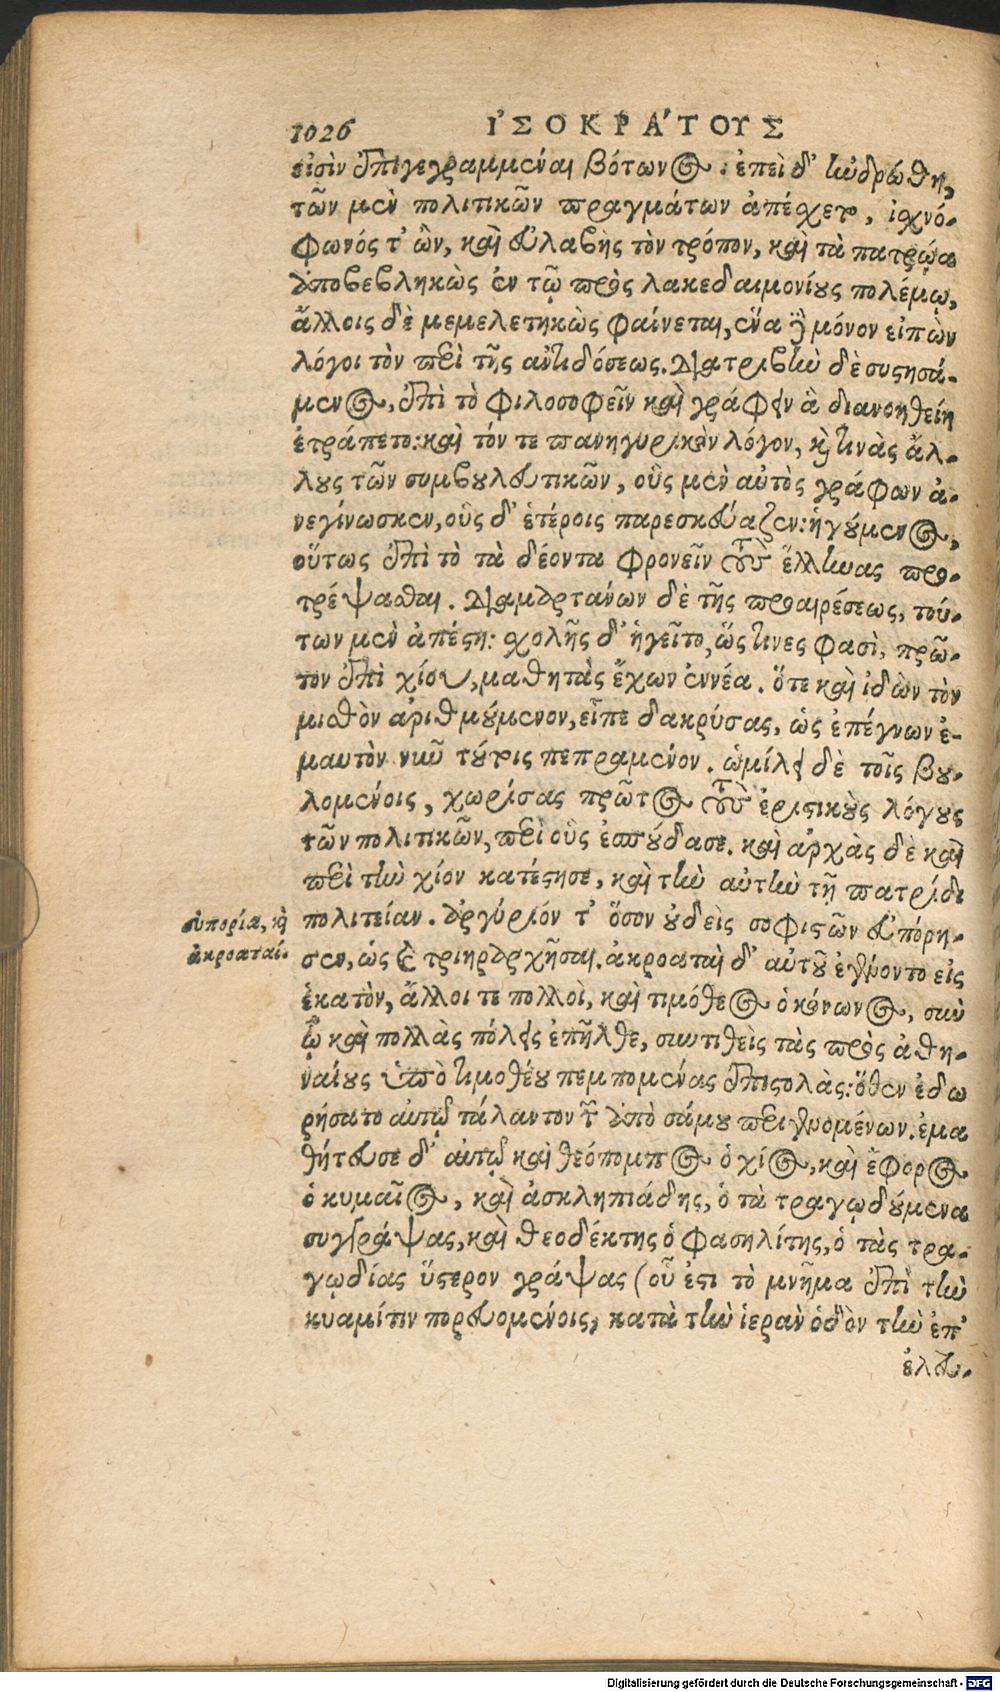 1026 ἸΣΟΚΡΑ΄ΤΟΥΣ
εἰσὶν ἐπιγεγραμμέναι βότωνος. ἐπεὶ δ' ἠνδρώθη,
τῶν μὲν πολιτικῶν πραγμάτων ἀπέχετο, ἰσχνό-
φωνός τ' ὢν, καὶ εὐλαβὴς τὸν τρόπον, καὶ τὰ πατρῷα
ἀποβεβληκὼς ἐν τῷ πρὸς λακεδαιμονίους πολέμῳ,
ἄλλοις δὲ μεμελετηκὼς φαίνεται, ἕνα δὲ μόνον εἰπὼν
λόγον τὸν περὶ τῆς ἀντιδόσεως. Διατριβὴν δὲ συστησά-
μενος, ἐπὶ τὸ φιλοσοφεῖν καὶ γράφειν ἃ διανοηθείη
ἐτράπετο: καὶ τόν τε πανηγυρικὸν λόγον, καὶ τινὰς ἄλ-
λους τῶν συμβουλευτικῶν, οὓς μὲν αὐτὸς γράφων ἀ-
νεγίνωσκεν, οὓς δ' ἑτέροις παρεσκεύαζεν: ἡγούμενος,
οὕτως ἐπὶ τὸ τὰ δέοντα φρονεῖν τοὺς ἕλληνας προ-
τρέψασθαι. Διαμαρτάνων δὲ τῆς προαιρέσεως, τού-
των μὲν ἀπέστη: σχολῆς δ' ἡγεῖτο, ὥς τινες φασὶ, πρῶ-
τον ἐπὶ χίου, μαθητὰς ἔχων ἐννέα. ὅτε καὶ ἰδὼν τὸν
μισθὸν ἀριθμούμενον, εἶπε δακρύσας, ὡς ἐπέγνων ἐ-
μαυτὸν νῦν τούτοις πεπραμένον. ὡμίλει δὲ τοῖς βου-
λομένοις, χωρίσας πρῶτος τοὺς ἐριστικοὺς λόγους
τῶν πολιτικῶν, περὶ οὓς ἐσπούδασε. καὶ ἀρχὰς δὲ καὶ
περὶ τὴν χίον κατέστησε, καὶ τὴν αὐτὴν τῇ πατρίδι
πολιτείαν. ἀργύριόν τ' ὅσον οὐδεὶς σοφιστῶν εὐπόρη-
σεν, ὡς καὶ τριηραρχῆσαι. ἀκροαταὶ δ' αὐτοῦ ἐγένοντο εἰς
ἑκατὸν, ἄλλοι τε πολλοὶ, καὶ τιμόθεος ὁ κόνωνος, σὺν
ᾧ καὶ πολλὰς πόλεις ἐπῆλθε, συντιθεὶς τὰς πρὸς ἀθη-
ναίους ὑπὸ τιμοθέου πεμπομένας ἐπιστολὰς: ὅθεν ἐδω
ρήσατο αὐτῷ τάλαντον τῶν ἀπὸ σάμου περιγενομένων. ἐμα
θήτευσε δ' αὐτῷ καὶ θεόπομπος ὁ χίος, καὶ ἔφορος
ὁ κυμαῖος, καὶ ἀσκληπιάδης, ὁ τὰ τραγῳδούμενα
συγγράψας, καὶ θεοδέκτης ὁ φασηλίτης, ὁ τὰς τρα-
γῳδίας ὕστερον γράψας (οὗ ἐστι τὸ μνῆμα ἐπὶ τὴν
κυαμίτιν πορευομένοις, κατὰ τὴν ἱερὰν ὁδὸν τὴν ἐπ'
ἐλευ-
εὐπορία, καὶ
ἀκροαταί.
Digitalisierung gefördert durch die Deutsche Forschungsgemeinschaft - DFG